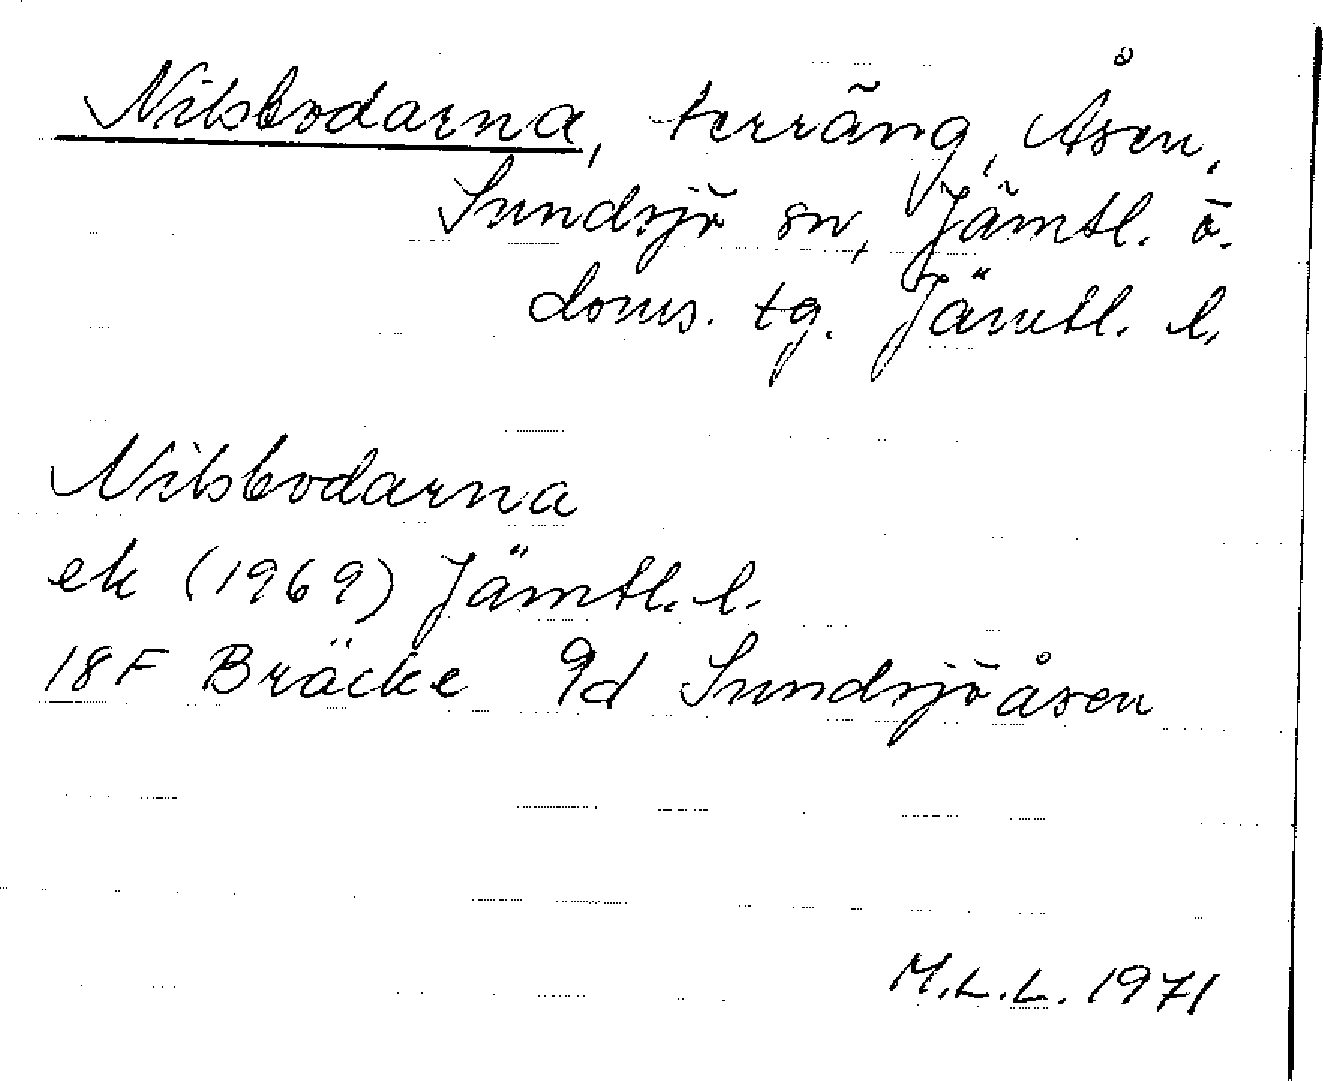 Nilsbodarna, terräng, Åsen,
Sundsjö sn, Jämtl. ö.
doms. tg. Jämtl. l.
Nilsbodarna
ek (1969) Jämtl. l.
18F Bräcke 9d Sundsjöåsen
M.L.L. 1971